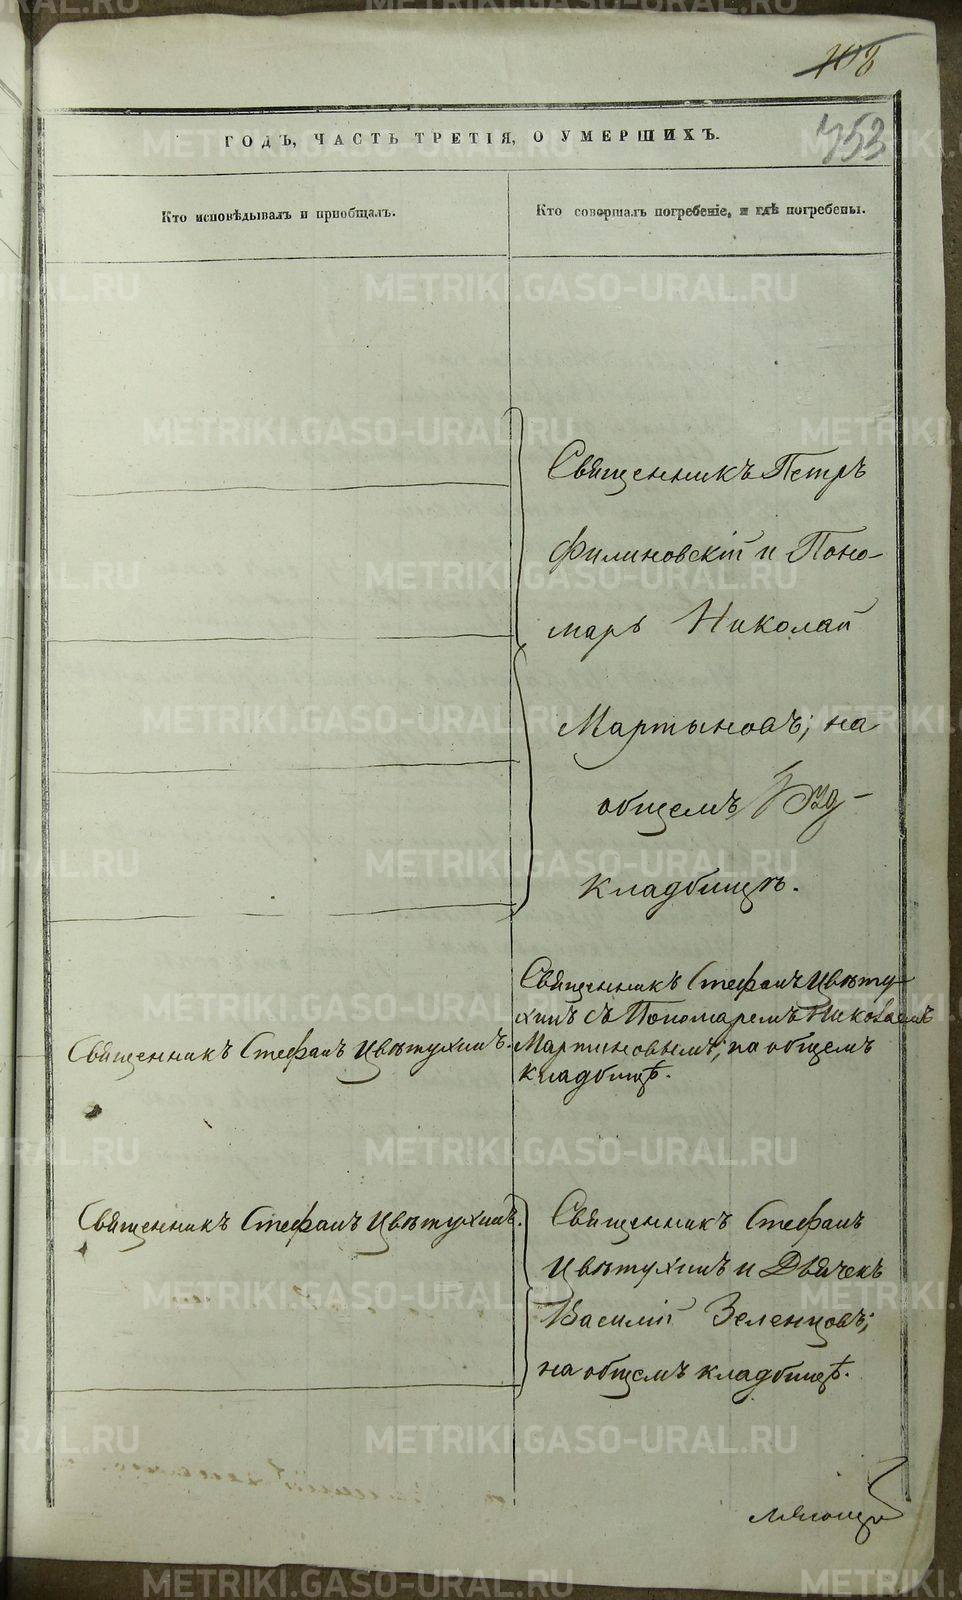 108
353
ГОДЪ, ЧАСТЬ ТРЕТІЯ, О УМЕРШИХЪ.
Кто исповѣдывалъ и пріобщалъ.
Кто совершалъ погребеніе, и гдѣ погребены.
Священникъ Петръ
Филиновскій и Поно-
марь Николай
Мартыновъ; на
общемъ
кладбищѣ.
Священникъ Стефанъ Цвѣтухинъ.
Священникъ Стефанъ Цвѣту-
хинъ съ Пономаремъ Николаемъ
Мартиновымъ; на общемъ
кладбищѣ.
Священникъ Стефанъ Цвѣтухинъ.
Священникъ Стефанъ
Цвѣтухинъ и Дьячекъ
Василій Зеленцовъ;
на общемъ кладбищѣ.
METRIKI.GASO-URAL.RU